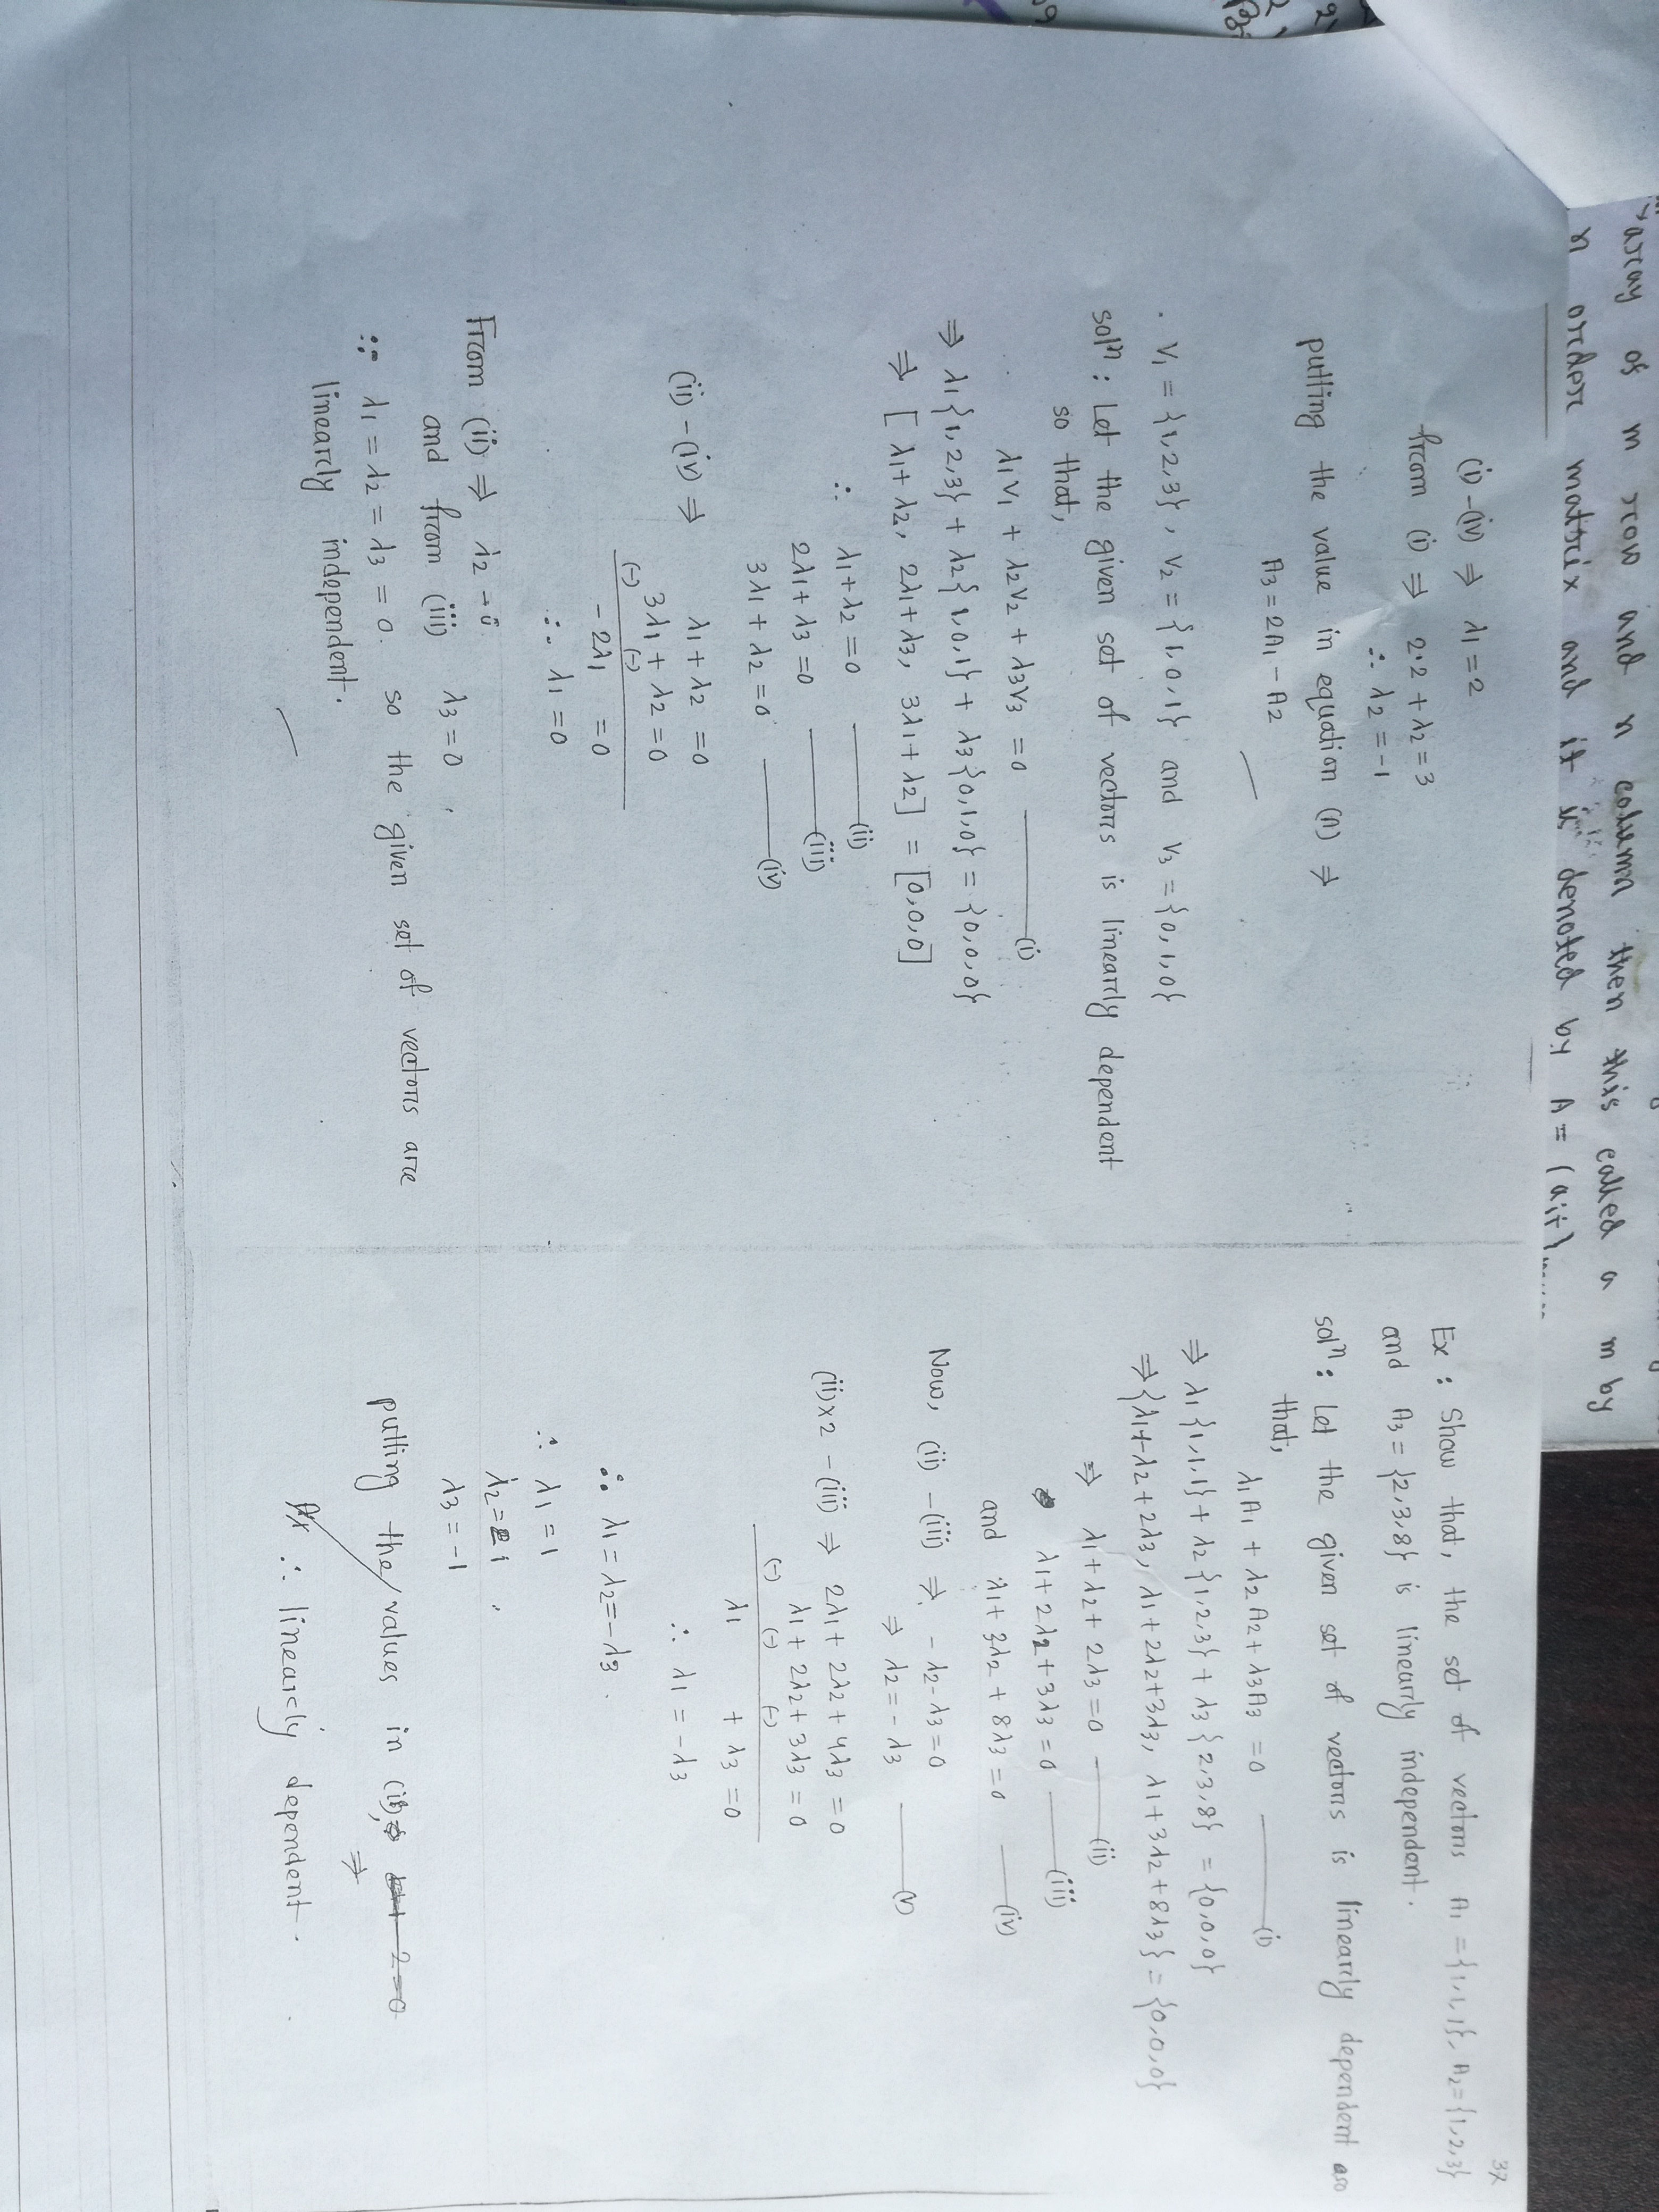 array of m row and n column then this called a m by
n order matrix and it is denoted by A = (aij)......
(i) - (iv) ⇒ λ1 = 2
from (i) ⇒ 2·2 + λ2 = 3
∴ λ2 = -1
putting the value in equation (A) ⇒
A3 = 2A1 - A2
. V1 = {1,2,3}, V2 = {1,0,1} and V3 = {0,1,0}
solⁿ: Let the given set of vectors is linearly dependent
so that,
λ1V1 + λ2V2 + λ3V3 = 0 ——(i)
⇒ λ1{1,2,3} + λ2{1,0,1} + λ3{0,1,0} = {0,0,0}
⇒ [λ1+λ2, 2λ1+λ3, 3λ1+λ2] = [0,0,0]
∴ λ1+λ2 = 0 ——(ii)
2λ1+λ3 = 0 ——(iii)
3λ1+λ2 = 0 ——(iv)
(ii) - (iv) ⇒ λ1+λ2 = 0
3λ1+λ2 = 0
(-) (-)
-2λ1 = 0
∴ λ1 = 0
From (ii) ⇒ λ2 = 0
and from (iii) λ3 = 0,
∴ λ1 = λ2 = λ3 = 0. so the given set of vectors are
linearly independent.
37
Ex : Show that, the set of vectors A1 = {1,1,1}, A2={1,2,3}
and A3 = {2,3,8} is linearly independent.
solⁿ: Let the given set of vectors is linearly dependent so
that,
λ1A1 + λ2A2 + λ3A3 = 0 ——(i)
⇒ λ1{1,1,1} + λ2{1,2,3} + λ3{2,3,8} = {0,0,0}
⇒ {λ1+λ2+2λ3, λ1+2λ2+3λ3, λ1+3λ2+8λ3} = {0,0,0}
⇒ λ1+λ2+2λ3 = 0 ——(ii)
λ1+2λ2+3λ3 = 0 ——(iii)
and λ1+3λ2+8λ3 = 0 ——(iv)
Now, (ii) - (iii) ⇒ -λ2-λ3 = 0
⇒ λ2 = -λ3 ——(v)
(ii)×2 - (iii) ⇒ 2λ1+2λ2+4λ3 = 0
λ1+2λ2+3λ3 = 0
(-) (-) (-)
λ1 + λ3 = 0
∴ λ1 = -λ3
∴ λ1 = λ2 = -λ3.
∴ λ1 = 1
λ2 = 1,
λ3 = -1
putting the values in 2=0
⇒
∴ linearly dependent.